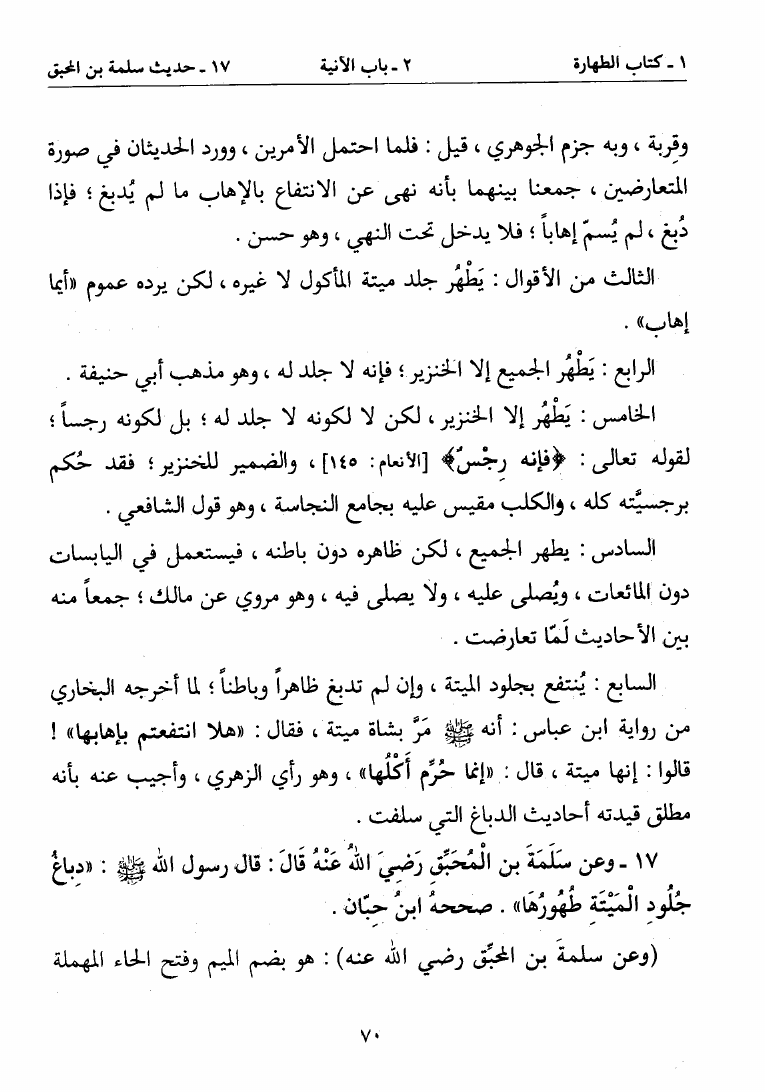 ١ ـ كتاب الطهارة ٢ ـ باب الآنية ١٧ ـ حديث سلمة بن المحبق
وقِربة ، وبه جزم الجوهري ، قيل : فلما احتمل الأمرين ، وورد الحديثان في صورة
المتعارضين ، جمعنا بينهما بأنه نهى عن الانتفاع بالإهاب ما لم يُدبغ ؛ فإذا
دُبغ ، لم يُسمّ إهاباً ؛ فلا يدخل تحت النهي ، وهو حسن .
الثالث من الأقوال : يَطْهُر جلد ميتة المأكول لا غيره ، لكن يرده عموم «أيما
إهاب» .
الرابع : يَطْهُر الجميع إلا الخنزير ؛ فإنه لا جلد له ، وهو مذهب أبي حنيفة .
الخامس : يَطْهُر إلا الخنزير ، لكن لا لكونه لا جلد له ؛ بل لكونه رجساً ؛
لقوله تعالى : ﴿فإنه رِجْسٌ﴾ [الأنعام: ١٤٥] ، والضمير للخنزير ؛ فقد حُكم
برجسيَّته كله ، والكلب مقيس عليه بجامع النجاسة ، وهو قول الشافعي .
السادس : يطهر الجميع ، لكن ظاهره دون باطنه ، فيستعمل في اليابسات
دون المائعات ، ويُصلى عليه ، ولا يصلى فيه ، وهو مروي عن مالك ؛ جمعاً منه
بين الأحاديث لَمّا تعارضت .
السابع : يُنتفع بجلود الميتة ، وإن لم تدبغ ظاهراً وباطناً ؛ لما أخرجه البخاري
من رواية ابن عباس : أنه ﷺ مَرَّ بشاة ميتة ، فقال : «هلا انتفعتم بإهابها» !
قالوا : إنها ميتة ، قال : «إنما حُرِّم أَكْلُها» ، وهو رأي الزهري ، وأجيب عنه بأنه
مطلق قيدته أحاديث الدباغ التي سلفت .
١٧ ـ وعن سَلَمَةَ بن الْمُحَبَّقِ رَضِيَ اللهُ عَنْهُ قَالَ : قال رسول الله ﷺ : «دِباغُ
جُلُودِ الْمَيْتَةِ طُهُورُهَا» . صححهُ ابنُ حِبّان .
(وعن سلمةَ بن المحبِّق رضي الله عنه) : هو بضم الميم وفتح الحاء المهملة
٧٠